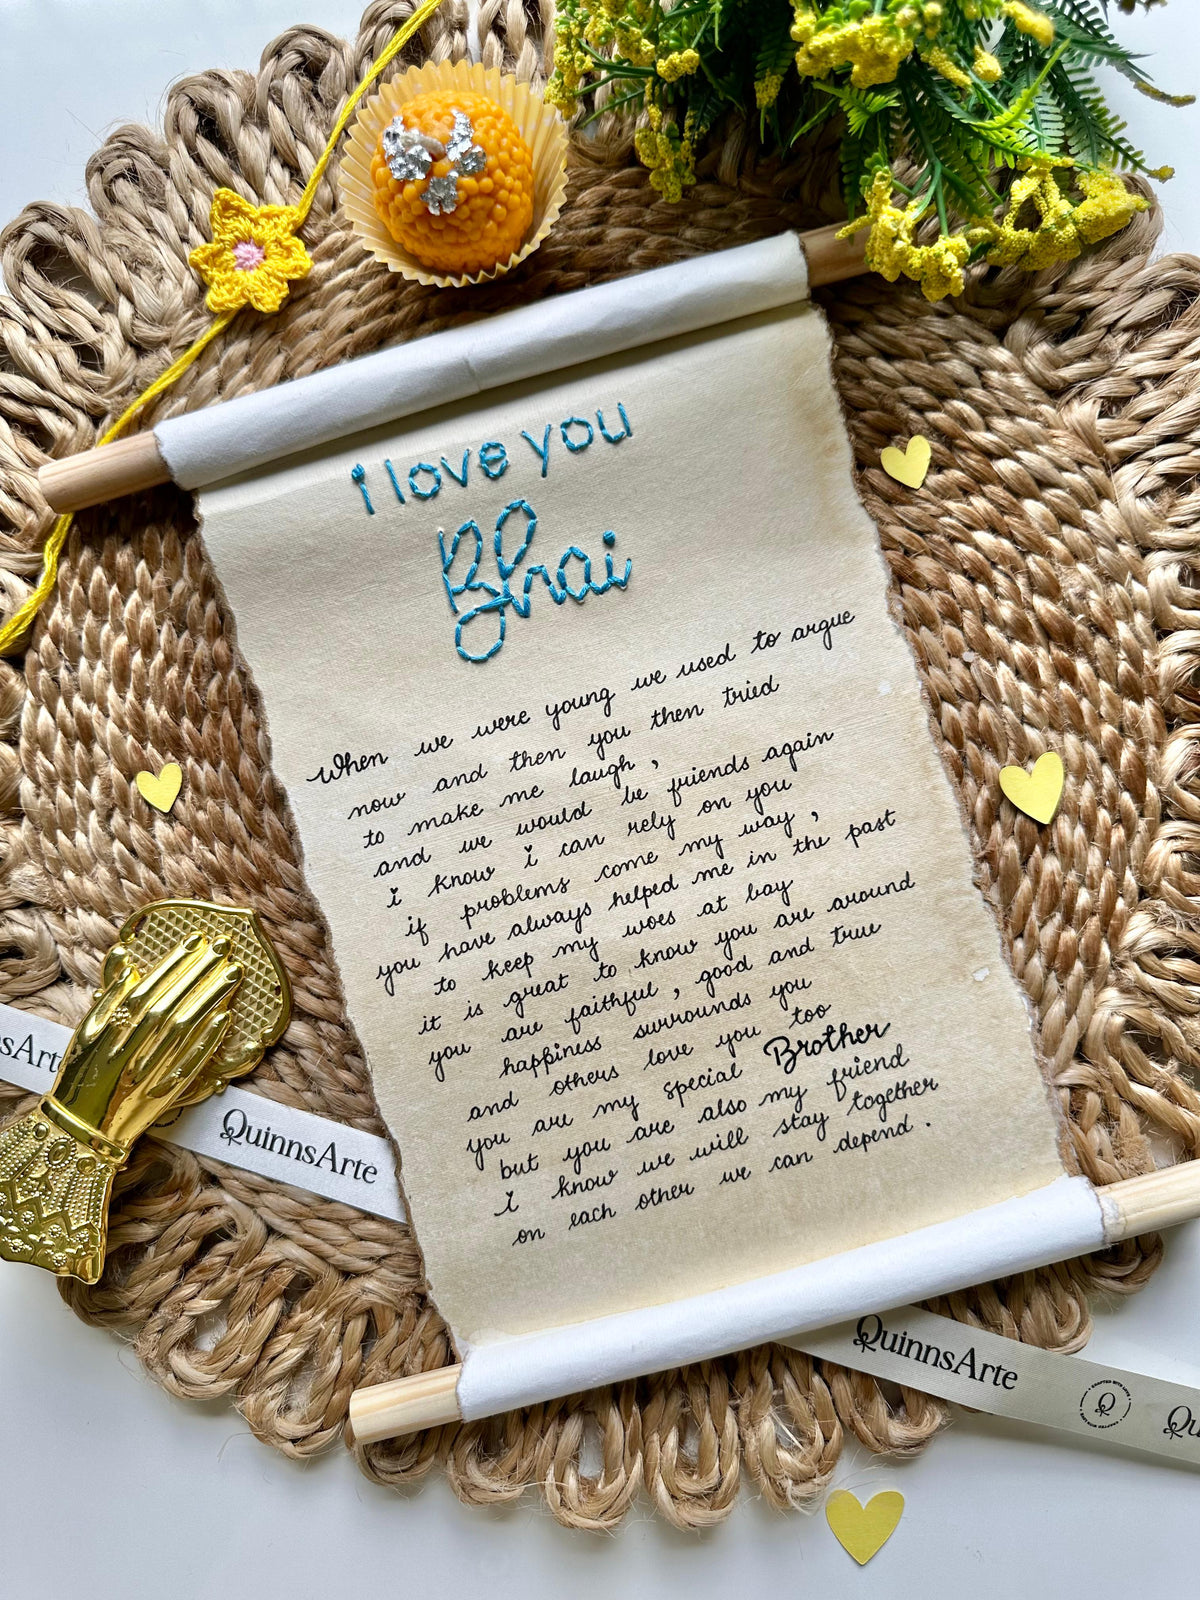 i love you
Bhai
When we were young we used to argue
now and then you then tried
to make me laugh ,
and we would be friends again
i know i can rely on you
if problems come my way ,
you have always helped me in the past
to keep my woes at bay
it is great to know you are around
you are faithful , good and true
happiness surrounds you
and others love you too
you are my special Brother
but you are also my friend
i know we will stay together
on each other we can depend .
QuinnsArte
QuinnsArte